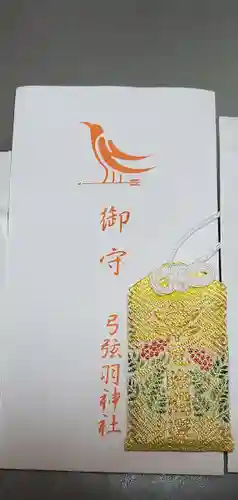 御守
弓弦羽神社